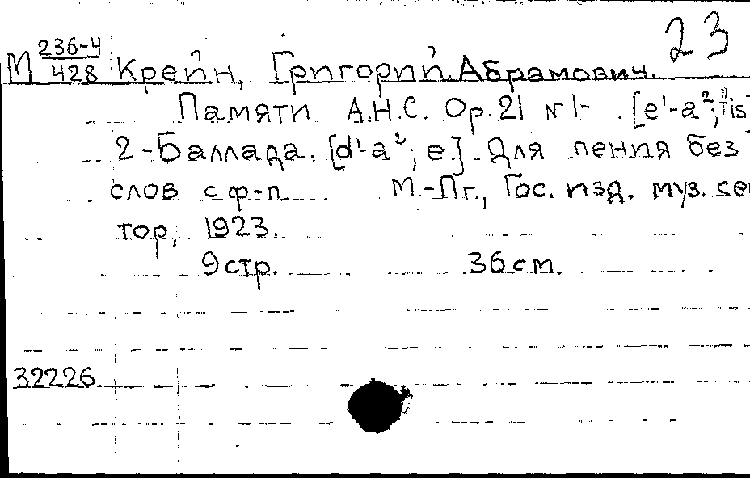 23
М 236-4/428 Крейн, Григорий Абрамович.
Памяти А.Н.С. Op.21 №1- . [e¹-a²; fis]
2-Баллада. [d¹-a²; e]. Для пения без
слов с ф-п М.-Пг., Гос. изд. муз. сек
тор, 1923.
9 стр. 36 cm.
32226